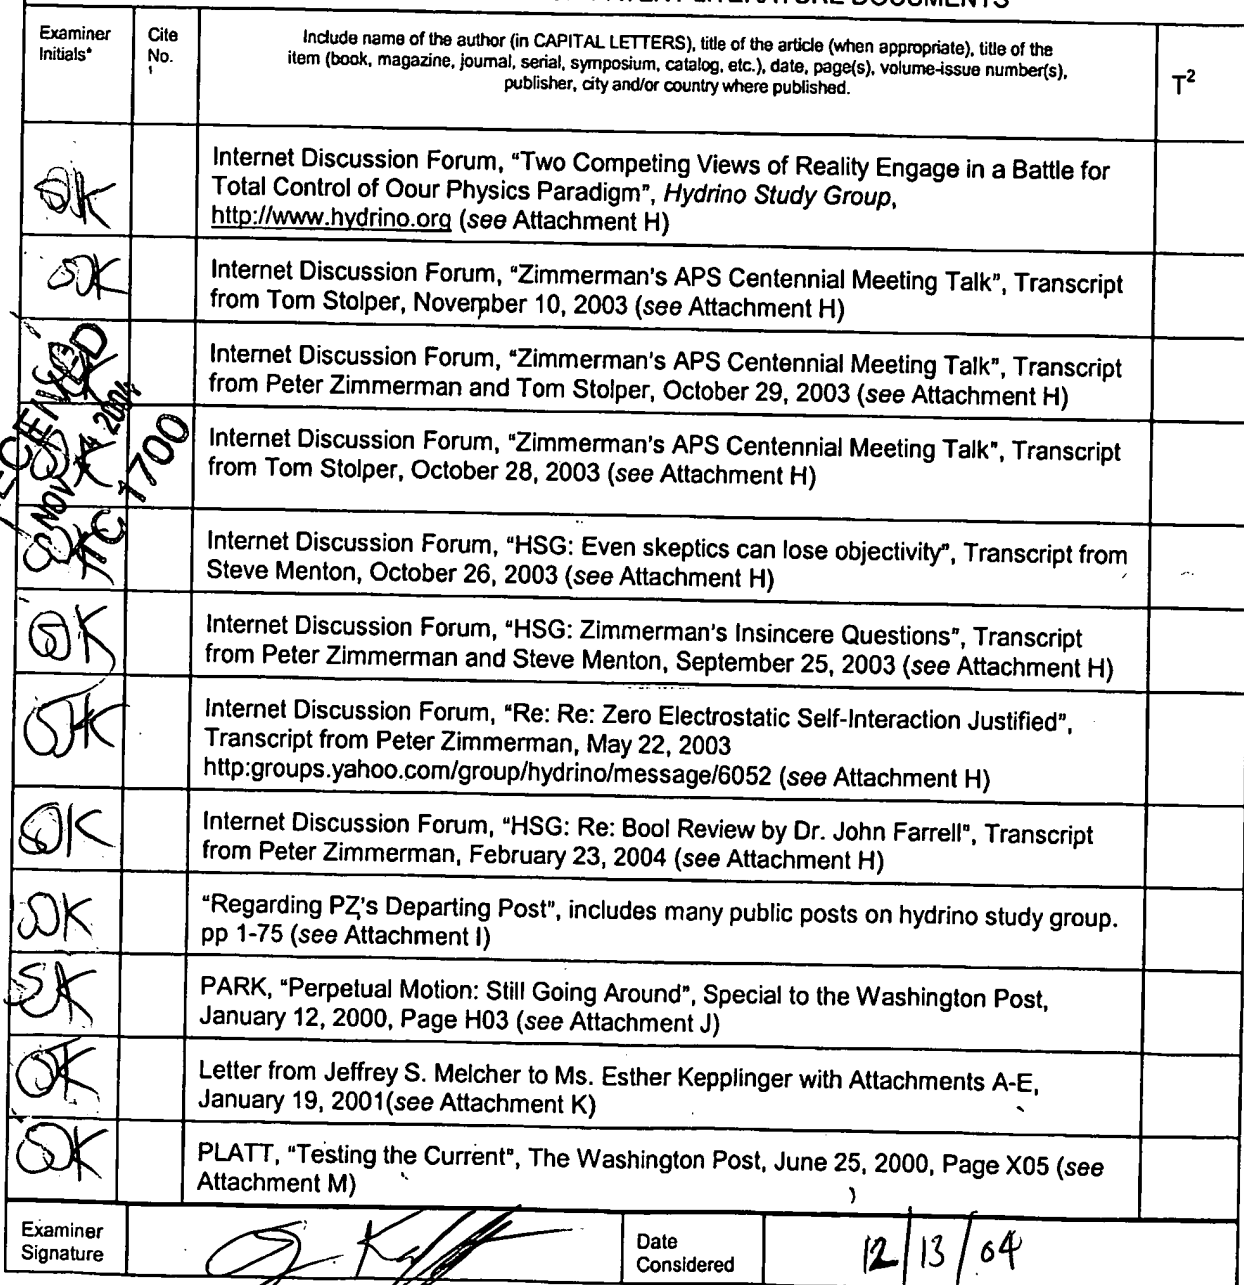 LITERATURE DOCUMENTS
Examiner
Initials*
Cite
No.
1
Include name of the author (in CAPITAL LETTERS), title of the article (when appropriate), title of the
item (book, magazine, journal, serial, symposium, catalog, etc.), date, page(s), volume-issue number(s),
publisher, city and/or country where published.
T2
Internet Discussion Forum, "Two Competing Views of Reality Engage in a Battle for
Total Control of Oour Physics Paradigm", Hydrino Study Group,
http://www.hydrino.org (see Attachment H)
Internet Discussion Forum, "Zimmerman's APS Centennial Meeting Talk", Transcript
from Tom Stolper, November 10, 2003 (see Attachment H)
Internet Discussion Forum, "Zimmerman's APS Centennial Meeting Talk", Transcript
from Peter Zimmerman and Tom Stolper, October 29, 2003 (see Attachment H)
Internet Discussion Forum, "Zimmerman's APS Centennial Meeting Talk", Transcript
from Tom Stolper, October 28, 2003 (see Attachment H)
TC 1700
Internet Discussion Forum, "HSG: Even skeptics can lose objectivity", Transcript from
Steve Menton, October 26, 2003 (see Attachment H)
Internet Discussion Forum, "HSG: Zimmerman's Insincere Questions", Transcript
from Peter Zimmerman and Steve Menton, September 25, 2003 (see Attachment H)
Internet Discussion Forum, "Re: Re: Zero Electrostatic Self-Interaction Justified",
Transcript from Peter Zimmerman, May 22, 2003
http:groups.yahoo.com/group/hydrino/message/6052 (see Attachment H)
Internet Discussion Forum, "HSG: Re: Bool Review by Dr. John Farrell", Transcript
from Peter Zimmerman, February 23, 2004 (see Attachment H)
"Regarding PZ's Departing Post", includes many public posts on hydrino study group.
pp 1-75 (see Attachment I)
PARK, "Perpetual Motion: Still Going Around", Special to the Washington Post,
January 12, 2000, Page H03 (see Attachment J)
Letter from Jeffrey S. Melcher to Ms. Esther Kepplinger with Attachments A-E,
January 19, 2001(see Attachment K)
PLATT, "Testing the Current", The Washington Post, June 25, 2000, Page X05 (see
Attachment M)
Examiner
Signature
Date
Considered
12/13/04